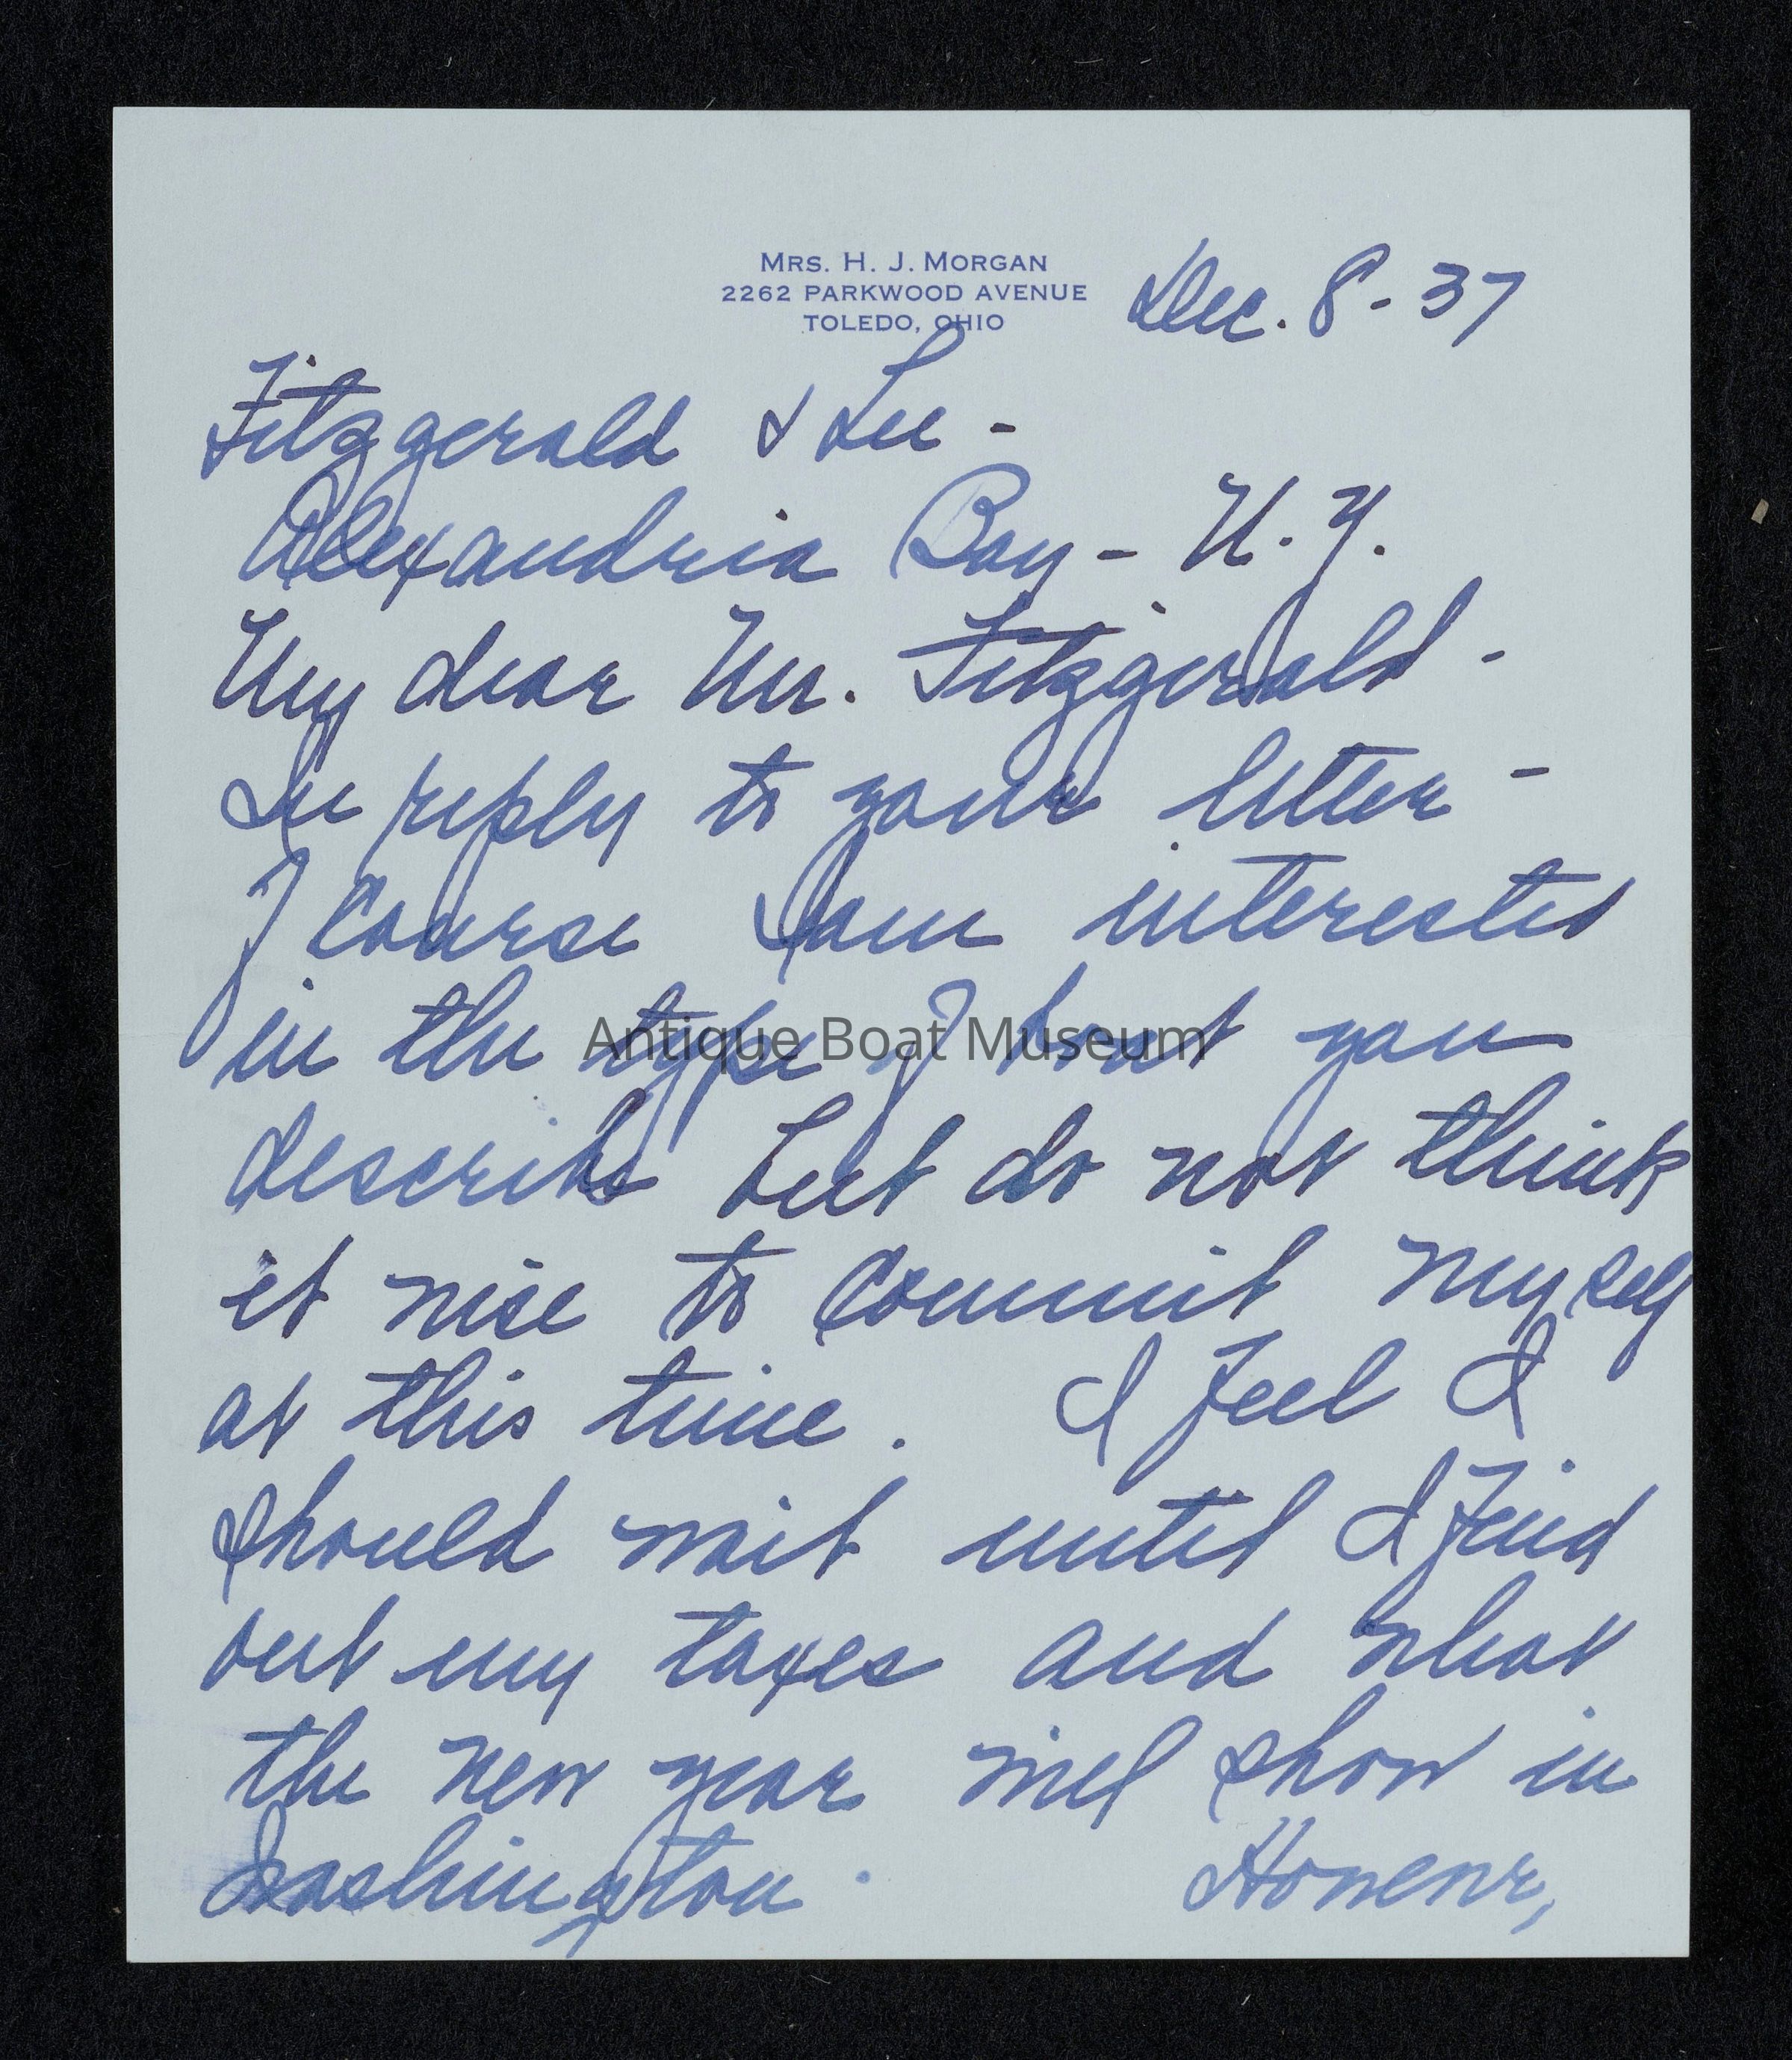 MRS. H. J. MORGAN
2262 PARKWOOD AVENUE
TOLEDO, OHIO
Dec. 8-37
Fitzgerald & Lee -
Alexandria Bay - N.Y.
My dear Mr. Fitzgerald -
In reply to your letter -
Of course I am interested
in the type of boat you
describe but do not think
it wise to commit myself
at this time. I feel I
should wait until I find
out my taxes and what
the new year will show in
Washington. However,
Antique Boat Museum